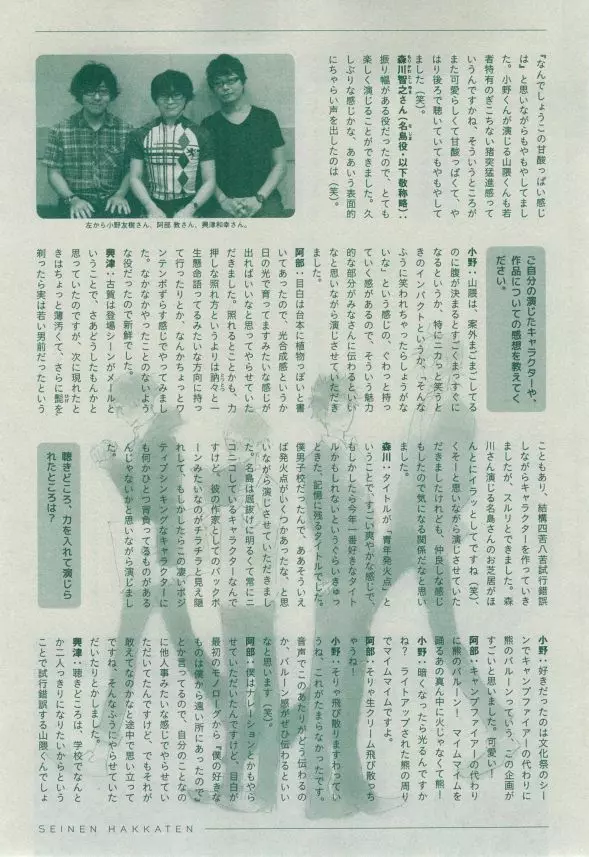 『なんでしょうこの甘酸っぱい感じ
は』と思いながらもやもやしてまし
た。小野くんが演じる山隈くんも若
者特有のぎこちない猪突猛進感って
いうんですかね、そういうところが
また可愛らしくて甘酸っぱくて、や
はり後ろで聴いていてもやもやして
ました（笑）。
森川智之さん（名島役・以下敬称略）：
振り幅がある役だったので、とても
楽しく演じることができました。久
しぶりな感じかな、ああいう表面的
にちゃらい声を出したのは（笑）。
左から小野友樹さん、阿部 敦さん、興津和幸さん。
ご自分の演じたキャラクターや、
作品についての感想を教えてく
ださい。
小野：山隈は、案外まごまごしてる
のに腹が決まるとすごくまっすぐに
なるというか、特にニカっと笑うと
きのインパクトというか、「そんな
ふうに笑われちゃったらしょうがな
いな」という感じの、ぐわっと持っ
ていく感があるので、そういう魅力
的な部分がみなさんに伝わるといい
なと思いながら演じさせていただき
ました。
阿部：目白は台本に植物っぽいと書
いてあったので、光合成感というか
日の光で育ってますみたいな感じが
出ればいいなと思ってやらせていた
だきました。照れるとことかも、力
押しな照れ方というよりは訥々と一
生懸命語ってるみたいな方向に持っ
て行ったりとか、なんかちょっとワ
ンテンポずらす感じでやってみまし
た。なかなかやったことのないよう
な役だったので新鮮でした。
興津：古賀は登場シーンがメールと
いうことで、さあどうしたもんかと
思っていたのですが、次に現れたと
きはちょっと薄汚くて、さらに髭を
剃ったら実は若い男前だったという
こともあり、結構四苦八苦試行錯誤
しながらキャラクターを作っていき
ましたが、スルリとできました。森
川さん演じる名島さんのお芝居がほ
んとにイラッとしてですね（笑）、
くそーと思いながら演じさせていた
だきましたけれども、仲良しな感じ
もしたので気になる関係だなと思い
ました。
森川：タイトルが「青年発火点」と
いうことで、すごい爽やかな感じで、
もしかしたら今年一番好きなタイト
ルかもしれないというぐらいきゅっ
ときた、記憶に残るタイトルでした。
僕男子校だったんで、ああそういえ
ば発火点がいくつかあったな、と思
いながら演じさせていただきまし
た。名島は底抜けに明るくて常にニ
コニコしているキャラクターなんで
すけど、彼の作家としてのバックボ
ーンみたいなのがチラチラと見え隠
れして、もしかしたらこの凄いポジ
ティブシンキングなキャラクターに
も何かひとつ背負ってるものがある
んじゃないかと思いながら演じまし
た。
聴きどころ、力を入れて演じら
れたところは？
小野：好きだったのは文化祭のシー
ンでキャンプファイアーの代わりに
熊のバルーンっていう、この企画が
すごいと思いました。可愛い！
阿部：キャンプファイアーの代わり
に熊のバルーン！ マイムマイムを
踊るあの真ん中に火じゃなくて熊！
小野：暗くなったら光るんですか
ね？ ライトアップされた熊の周り
でマイムマイムですよ。
阿部：そりゃ生クリーム飛び散っち
ゃうね！
小野：そりゃ飛び散りますわってい
うね、これがたまらなかったです。
音声でこのあたりがどう伝わるの
か、バルーン感がぜひ伝わるといい
なと思います（笑）。
阿部：僕はナレーションとかもやら
せていただいたんですけど、目白が
最初のモノローグから『僕の好きな
ものは僕から遠い所にあったので』
とか言ってるので、自分のことなの
に他人事みたいな感じでやらせてい
ただいてたんですけど、でもそれが
敢えてなのかなと途中で思い立って
ですね、そんなふうにやらせていた
だいたりとかしました。
興津：聴きどころは、学校でなんと
か二人っきりになりたいからという
ことで試行錯誤する山隈くんでしょ
SEINEN HAKKATEN